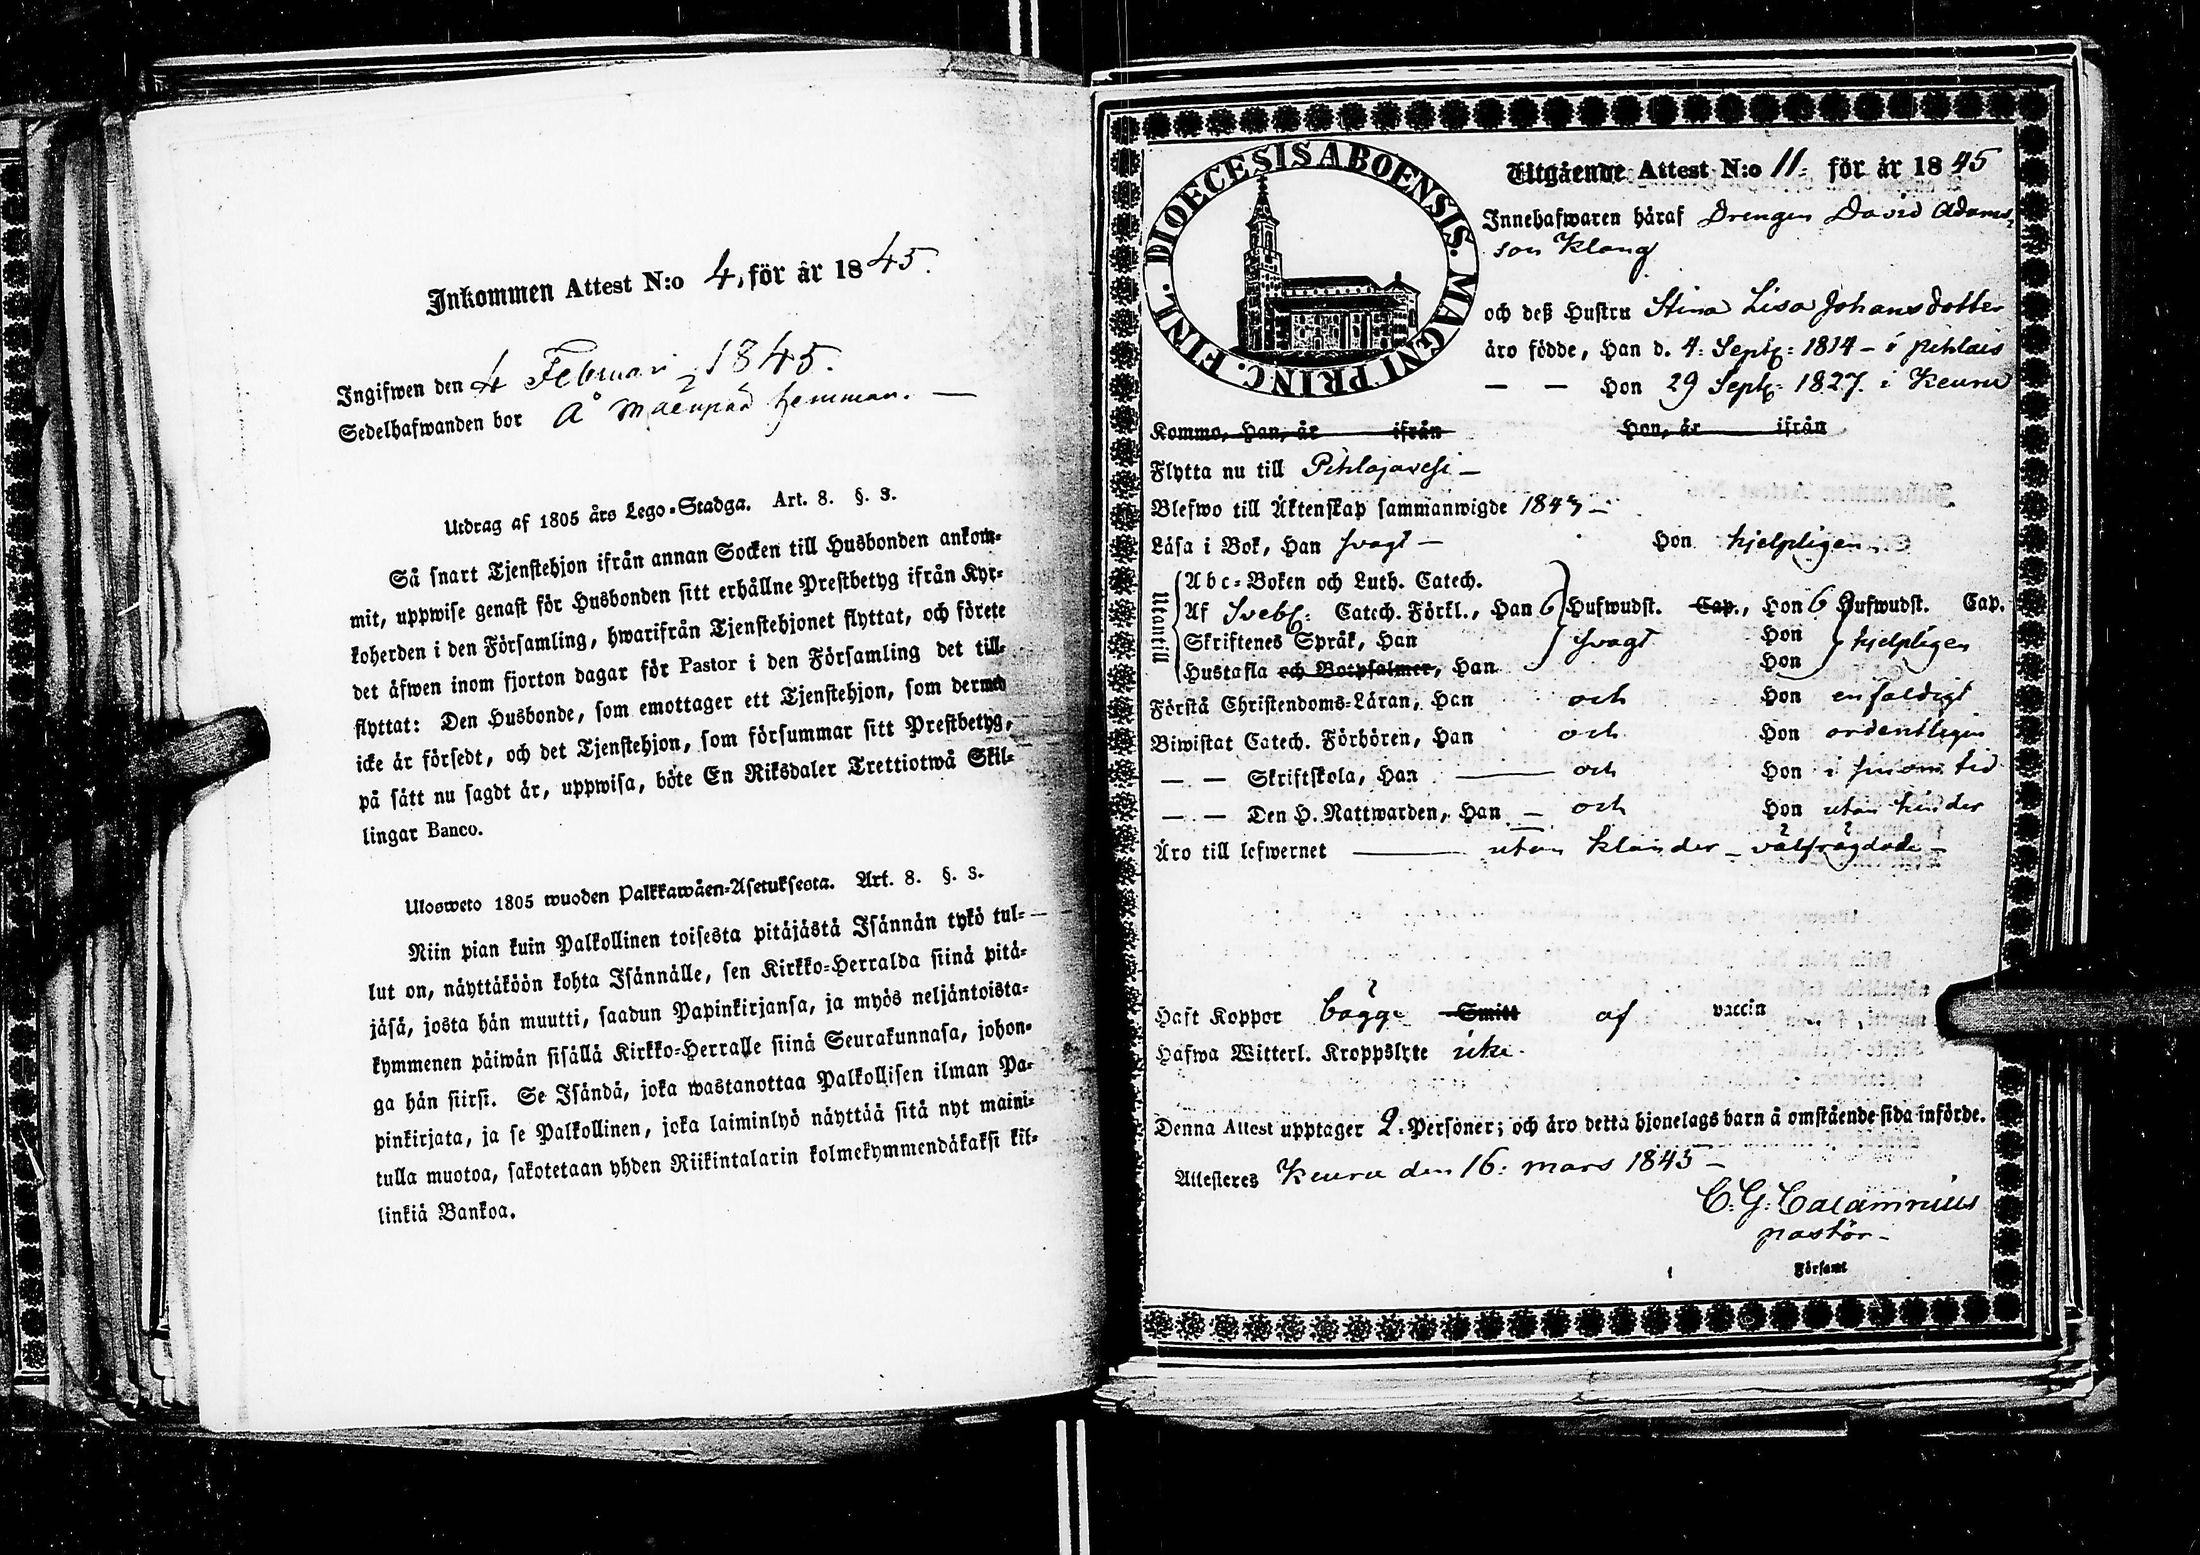 Inkommen Attest N:o 4, för år 1845.
Ingifwen den 4 Februari 1845.
Sedelhafwanden bor Å Mäenpää hemman. —
Utdrag af 1805 års Lego-Stadga. Art. 8. §. 3.
Så snart Tjenstehjon ifrån annan Socken till Husbonden ankom-
mit, uppwise genast för Husbonden sitt erhållne Prestbetyg ifrån Kyr-
koherden i den Församling, hwarifrån Tjenstehjonet flyttat, och förete
det äfwen inom fjorton dagar för Pastor i den Församling det till-
flyttat: Den Husbonde, som emottager ett Tjenstehjon, som dermed
icke är försedt, och det Tjenstehjon, som försummar sitt Prestbetyg,
på sätt nu sagdt är, uppwisa, böte En Riksdaler Trettiotwå Skil-
lingar Banco.
Ulosweto 1805 wuoden Palkkawäen-Asetuksesta. Art. 8. §. 3.
Niin pian kuin Palkollinen toisesta pitäjästä Isännän tykö tul-
lut on, näyttäköön kohta Isännälle, sen Kirkko-Herralda siinä pitä-
jäsä, josta hän muutti, saadun Papinkirjansa, ja myös neljäntoista-
kymmenen päiwän sisällä Kirkko-Herralle siinä Seurakunnasa, johon-
ga hän siirsi. Se Isändä, joka wastanottaa Palkollisen ilman Pa-
pinkirjata, ja se Palkollinen, joka laiminlyö näyttää sitä nyt maini-
tulla muotoa, sakotetaan yhden Riikintalarin kolmekymmendäkaksi kil-
linkiä Bankoa.
DIOECESIS ABOENSIS. MAGNI PRINC. FINL.
Utgående Attest N:o 11. för år 1845
Innehafwaren häraf Drengen David Adams-
son Klang
och deß Hustru Stina Lisa Johansdotter
äro födde, Han d. 4: Sept: 1814 – i Pihlais
— — Hon 29 Sept: 1827. i Keuru
Kommo, Han, år ifrån Hon, år ifrån
Flytta nu till Pihlajavesi –
Blefwo till Äktenskap sammanwigde 1843 –
Läsa i Bok, Han svagt – Hon hjelpligen
Utantill
Abc-Boken och Luth. Catech.
Af Sveb: Catech. Förkl., Han 6 Hufwudst. Cap., Hon 6 Hufwudst. Cap.
Skriftenes Språk, Han svagt Hon hjelpligen
Hustafla och Botpsalmer, Han Hon
Förstå Christendoms-Läran, Han och Hon enfaldigt
Biwistat Catech. Förhören, Han och Hon ordentligen
— — Skriftskola, Han och Hon i sinom tid
— — Den H. Nattwarden, Han – och Hon utan hinder
Äro till lefwernet utan klander – välfrägdade –
Haft Koppor bägge Smitt af vaccin
Hafwa Witterl. Kroppslyte icke.
Denna Attest upptager 2. Personer; och äro detta hjonelags barn å omstående sida införde.
Attesteres Keuru den 16: mars 1845 –
C. G. Calamnius
pastor –
Församl